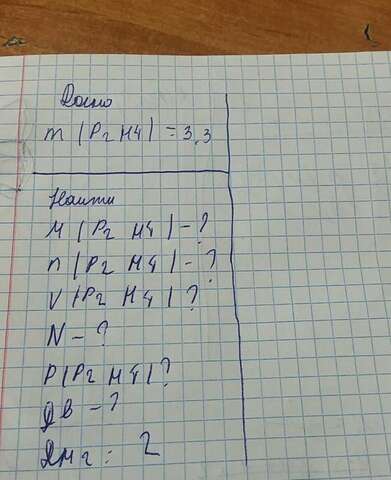 Дано
m (P2 H4) = 3,3
Найти
M (P2 H4) - ?
n (P2 H4) - ?
V (P2 H4) ?
N - ?
P (P2 H4) ?
Дв - ?
Дн2 : 2